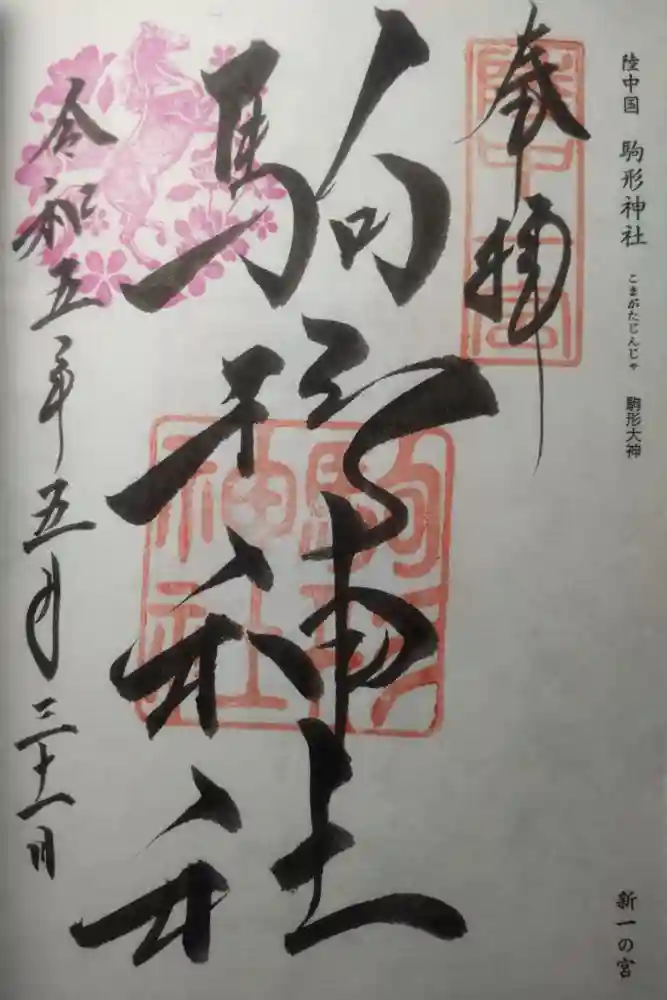 陸中国 駒形神社 こまがたじんじゃ 駒形大神
新一の宮
奉拝
陸中一宮
駒形神社
駒形神社
令和五年五月三十一日